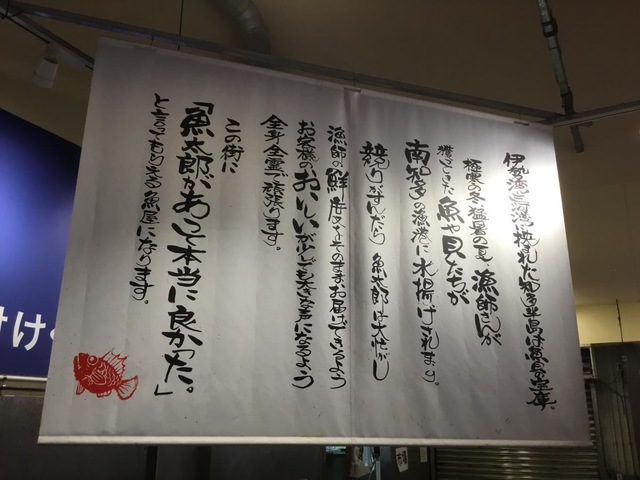 伊勢湾三河湾に挟まれた知多半島は魚貝の宝庫。
極寒の冬、猛暑の夏、漁師さんが
獲ってきた魚や貝たちが
南知多の漁港に水揚げされます。
競りがすんだら魚太郎は大忙し
漁師の鮮度をそのままお届けできるよう
お客様のおいしいが少しでも大きな声になるよう
全身全霊で頑張ります。
この街に
「魚太郎があって本当に良かった。」
と言ってもらえる魚屋になります。